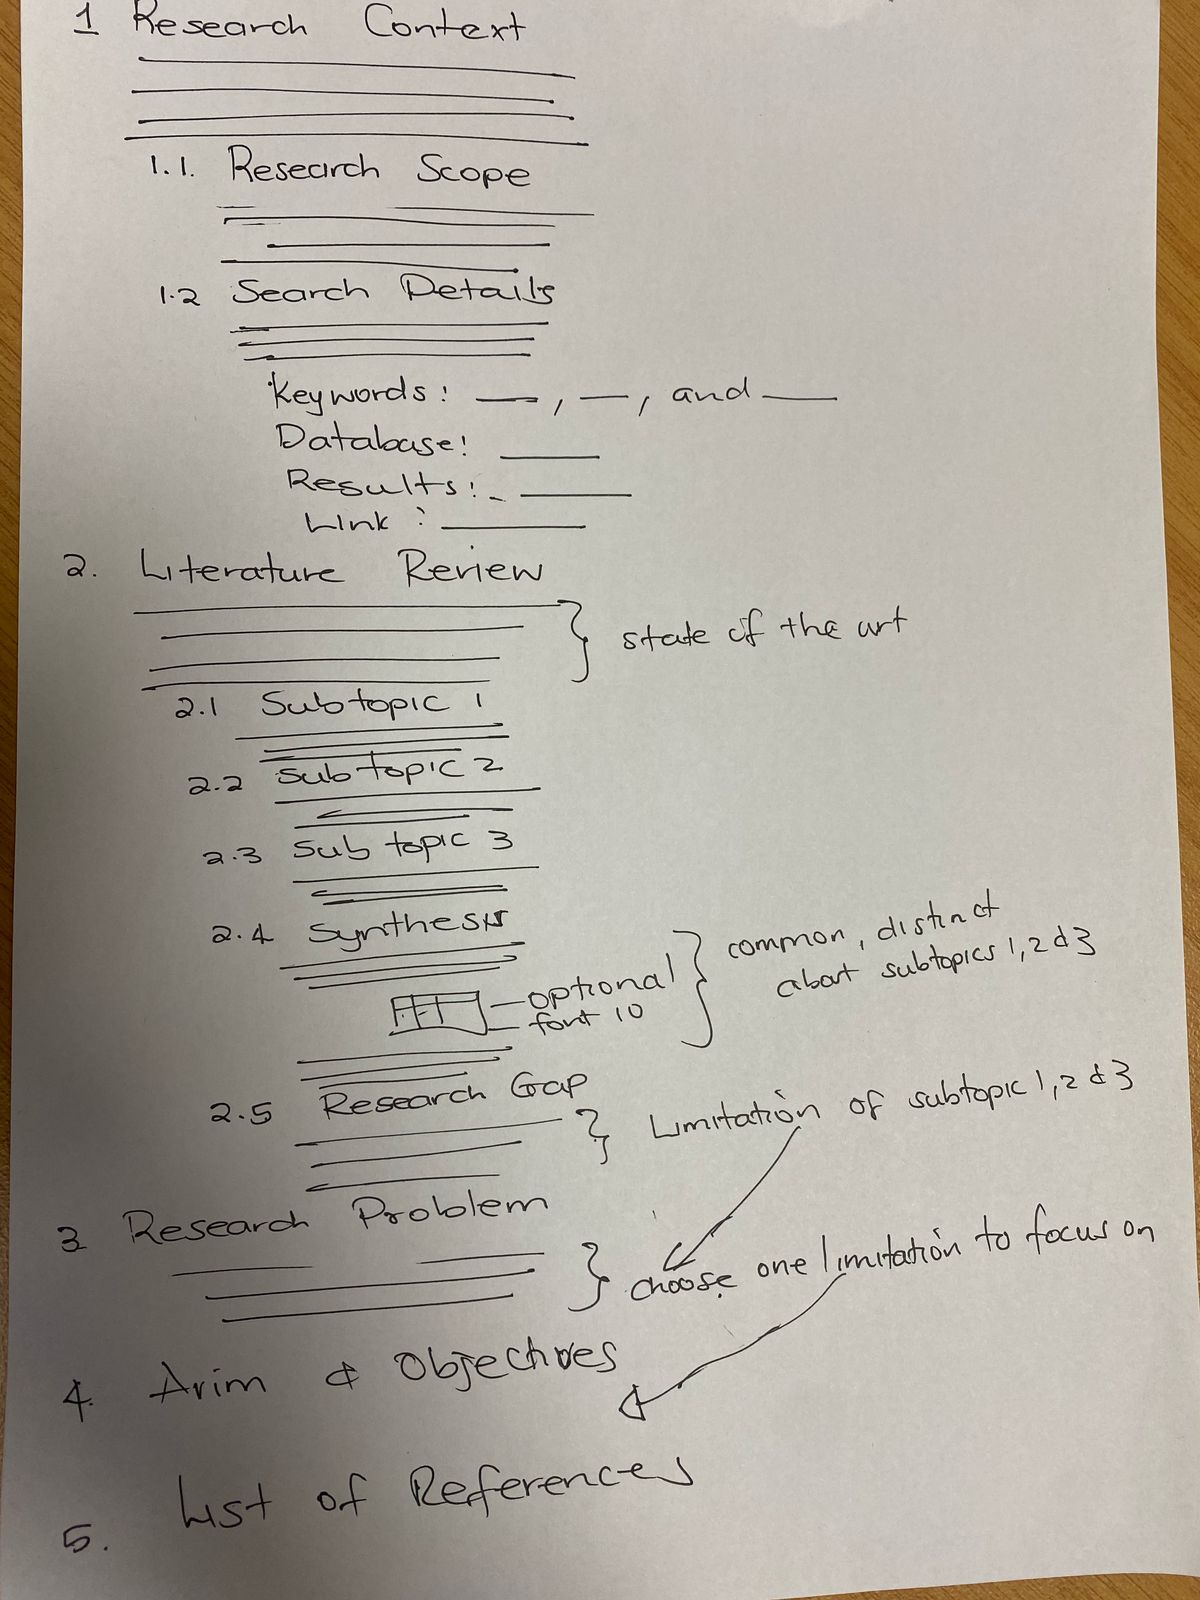 1 Research Context
1.1. Research Scope
1.2 Search Details
Keywords: __, __, and __
Database: __
Results: __
Link: __
2. Literature Review
state of the art
2.1 Subtopic 1
2.2 Subtopic 2
2.3 Sub topic 3
2.4 Synthesis
common, distinct
about subtopics 1, 2 & 3
optional
font 10
2.5 Research Gap
Limitation of subtopic 1, 2 & 3
3 Research Problem
choose one limitation to focus on
4. Aim & Objectives
5. List of References